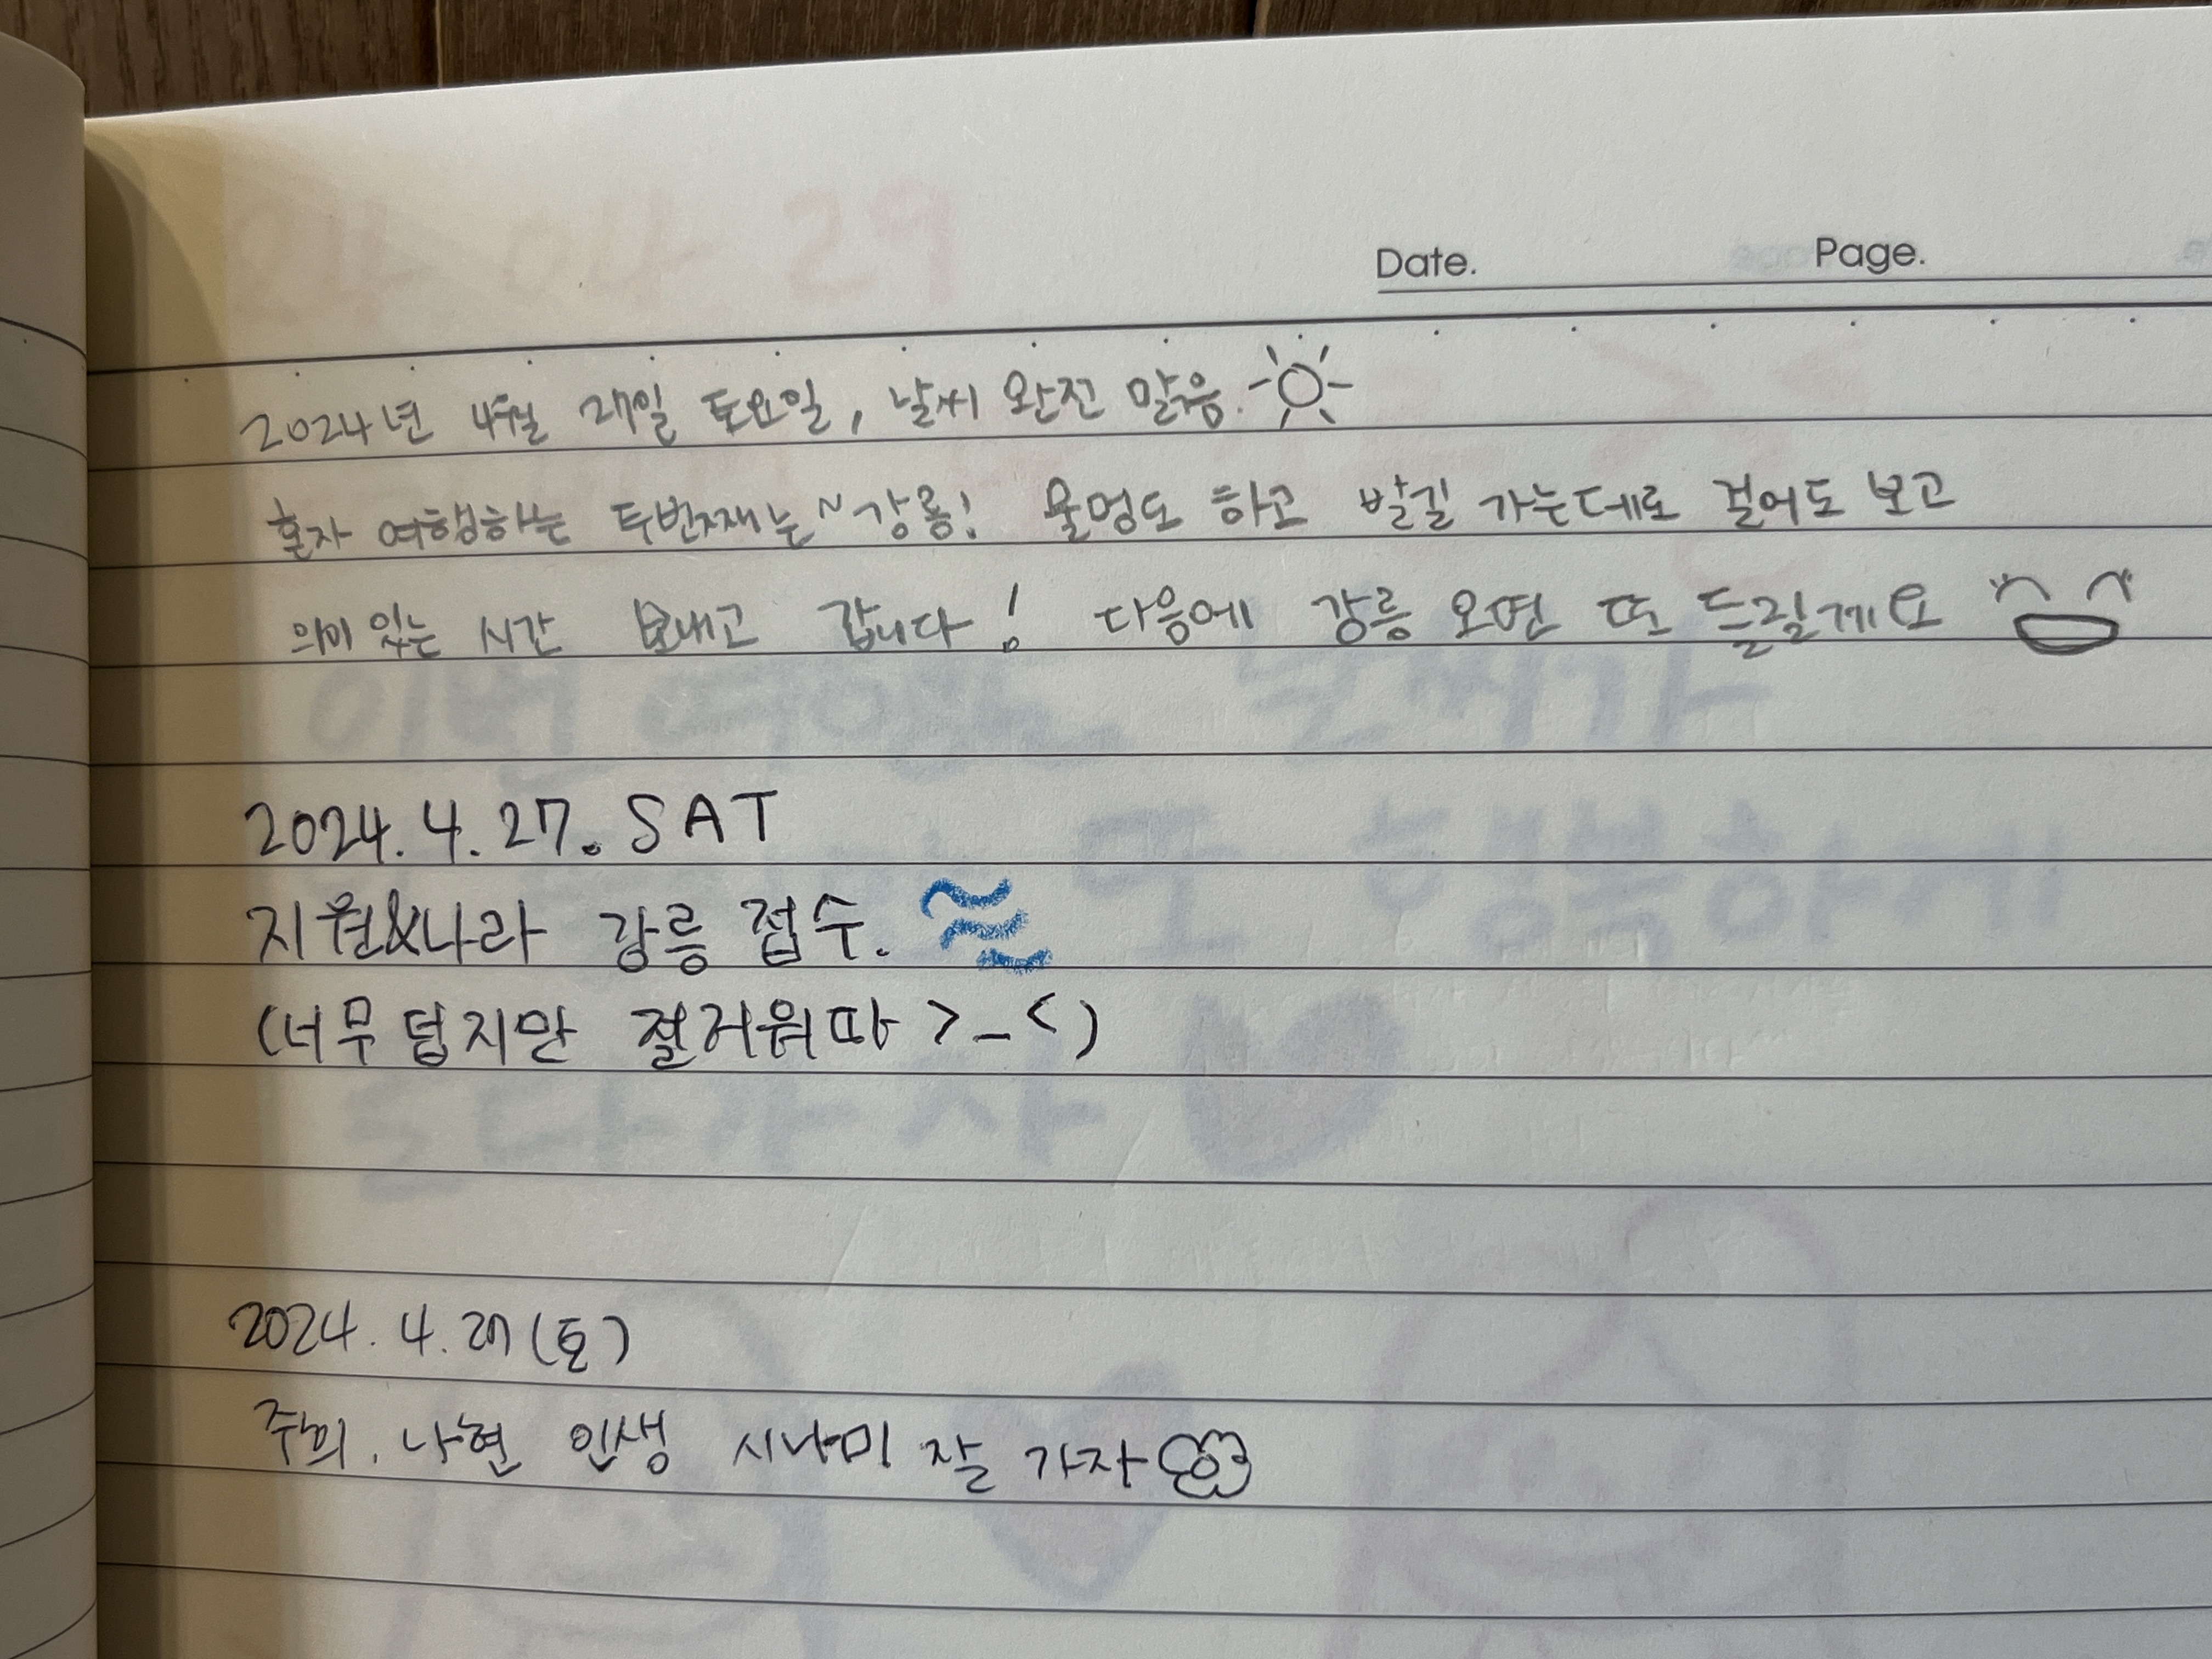 Date. Page.
2024년 4월 27일 토요일, 날씨 완전 맑음.
혼자 여행하는 두번째는~ 강릉! 물멍도 하고 발길 가는데로 걸어도 보고
의미 있는 시간 보내고 갑니다! 다음에 강릉 오면 또 드릴게요
2024. 4. 27. SAT
지원&나라 강릉 접수.
(너무 덥지만 절거워따 >_<)
2024. 4. 27 (토)
주희. 나현 인생 시나미 잘 가자